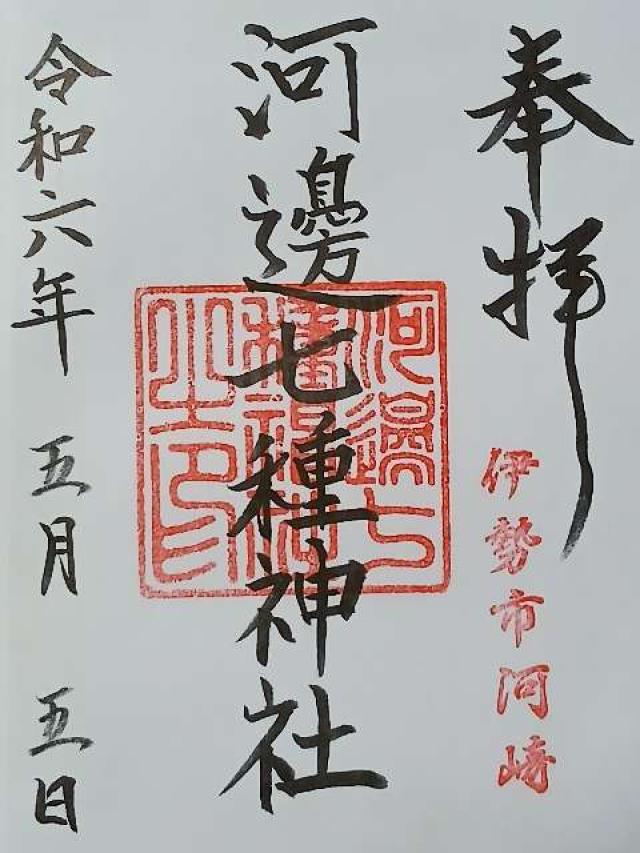 奉拝
伊勢市河崎
河邊七種神社
河邊七
種神社
之印
令和六年 五月 五日